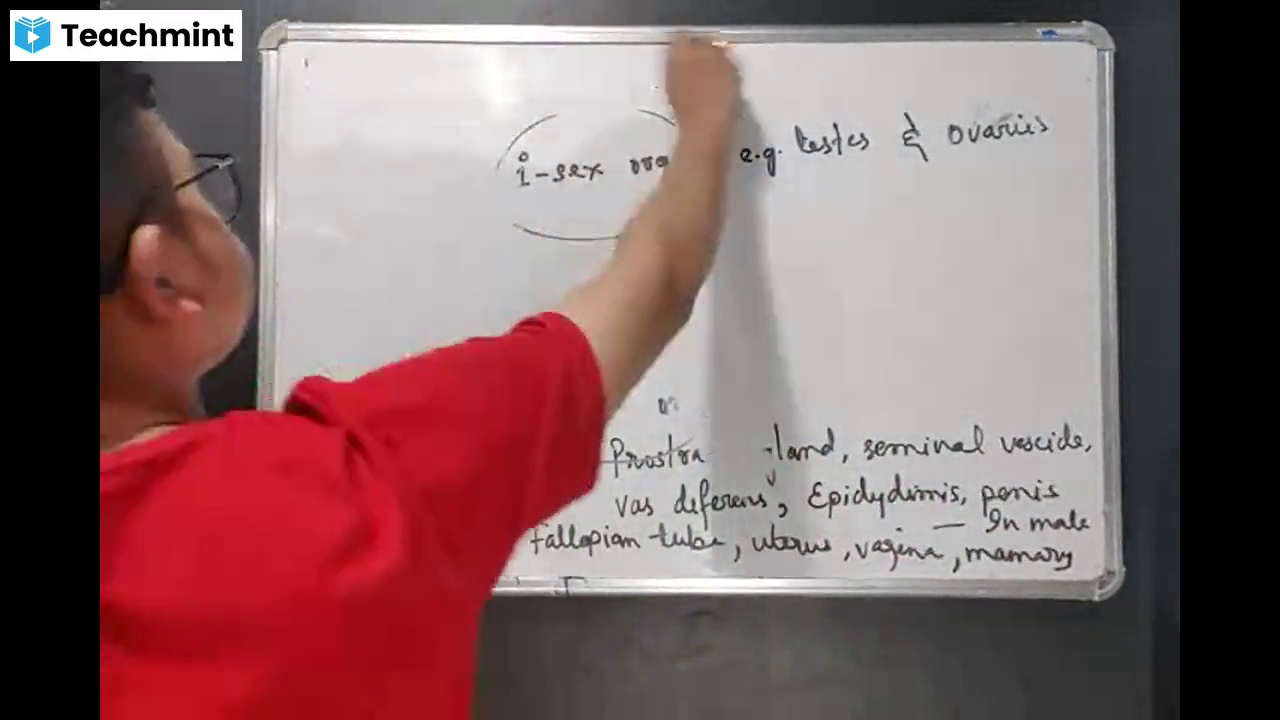 Teachmint
i-sex e.g. testes & ovaries
Prostra land, seminal vescide,
vas diferens, Epidydimis, penis
— In male
fallopian tube, uterus, vagina, mamary